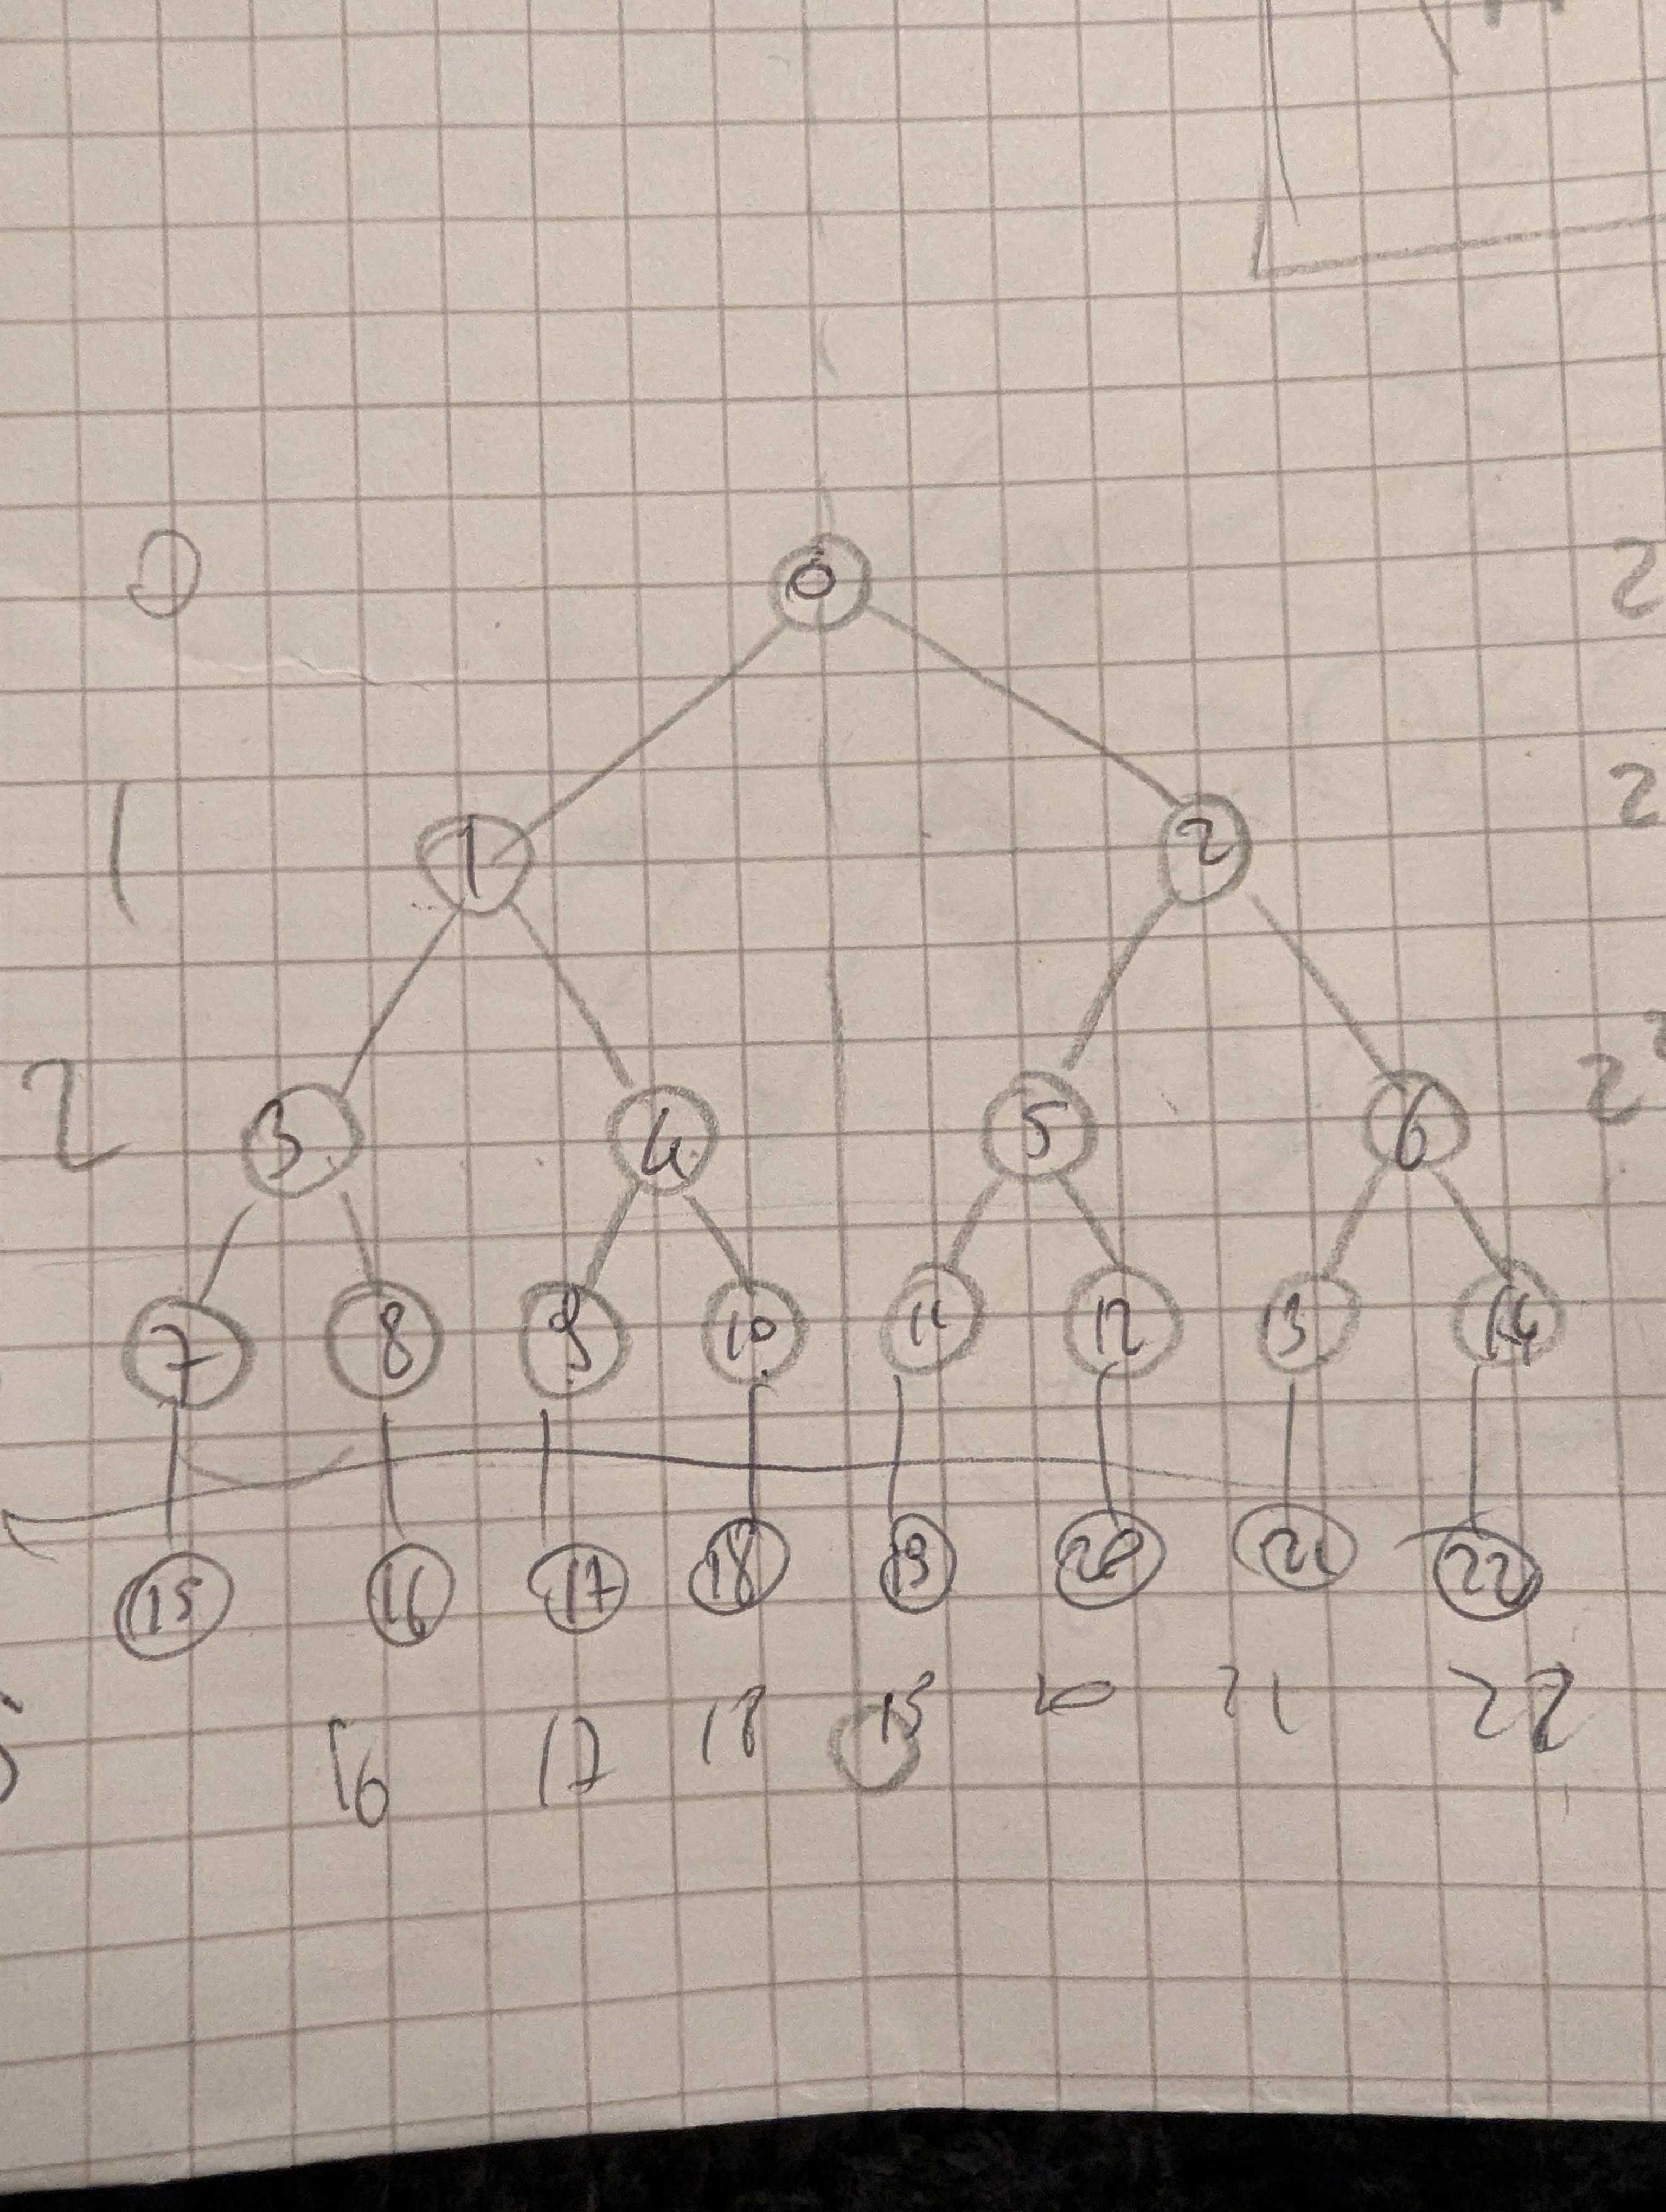 0 0 2
1 1 2 2
2 3 4 5 6 2²
7 8 9 10 11 12 13 14
15 16 17 18 19 20 21 22
16 17 18 19 20 21 22